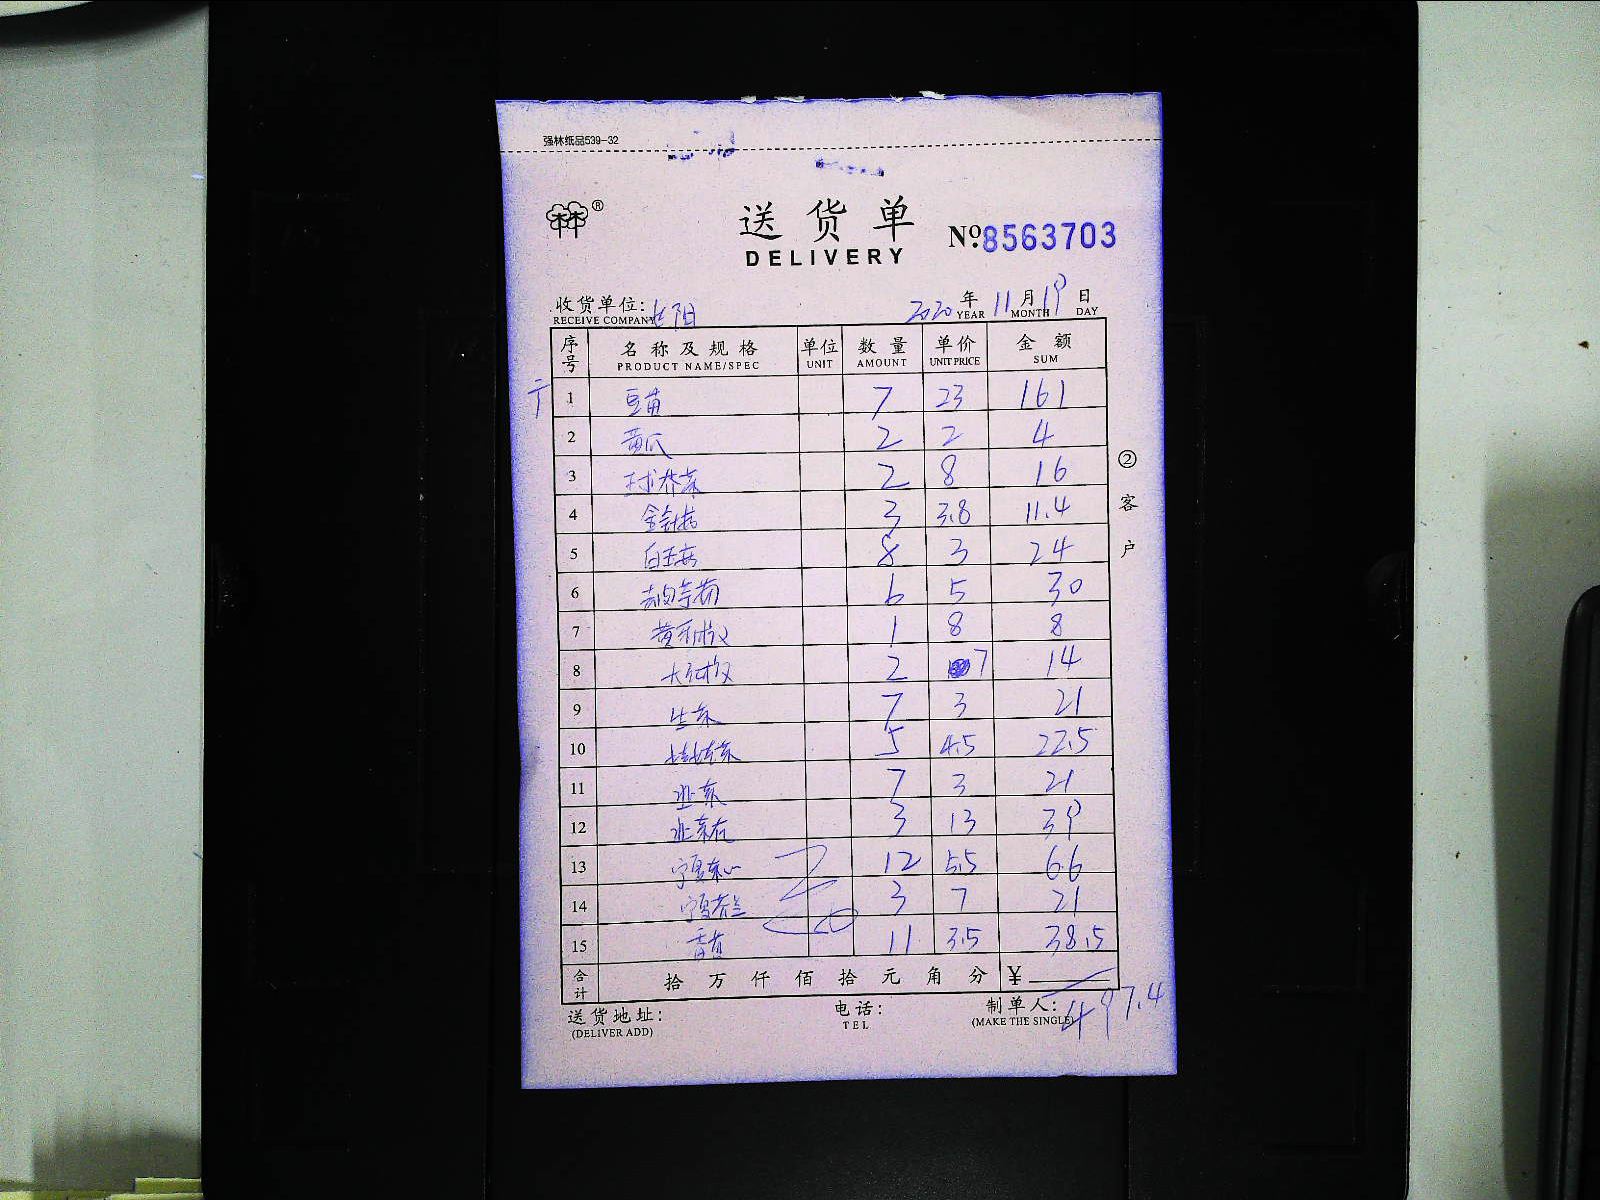 强林纸品539-32
®
送货单
DELIVERY
Nº 8563703
收货单位:
RECEIVE COMPANY
2020 年 11 月 19 日
YEAR MONTH DAY
序号 名称及规格 单位 数量 单价 金额
PRODUCT NAME/SPEC UNIT AMOUNT UNIT PRICE SUM
1 豆苗 7 23 161
2 黄瓜 2 2 4
3 球芥菜 2 8 16
4 金针菇 3 3.8 11.4
5 白玉菇 8 3 24
6 6 5 30
7 黄彩椒 1 8 8
8 大红椒 2 7 14
9 生菜 7 3 21
10 5 4.5 22.5
11 7 3 21
12 3 13 39
13 宁夏菜心 12 5.5 66
14 宁夏芥兰 3 7 21
15 11 3.5 38.5
合计 拾 万 仟 佰 拾 元 角 分 ¥
497.4
送货地址: 电话: 制单人:
(DELIVER ADD) TEL (MAKE THE SINGLE)
②客户